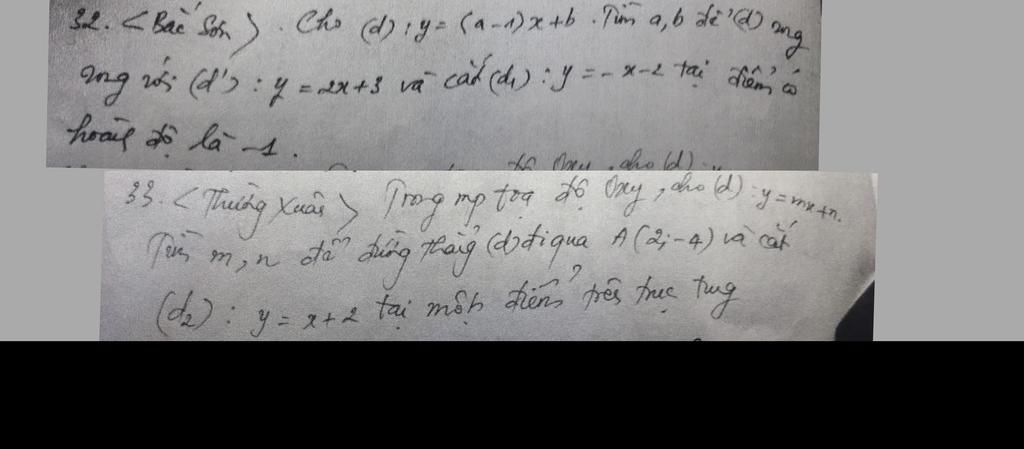 32. <Bắc Sơn>. Cho (d): y = (a-1)x+b. Tìm a,b để (d) song
song với (d'): y = 2x+3 và cắt (d₁): y = -x-2 tại điểm có
hoành độ là -1.
33. <Thường Xuân> Trong mp tọa độ Oxy, cho (d): y=mx+n.
Tìm m,n để đường thẳng (d) đi qua A(2;-4) và cắt
(d₂): y = x+2 tại một điểm trên trục tung